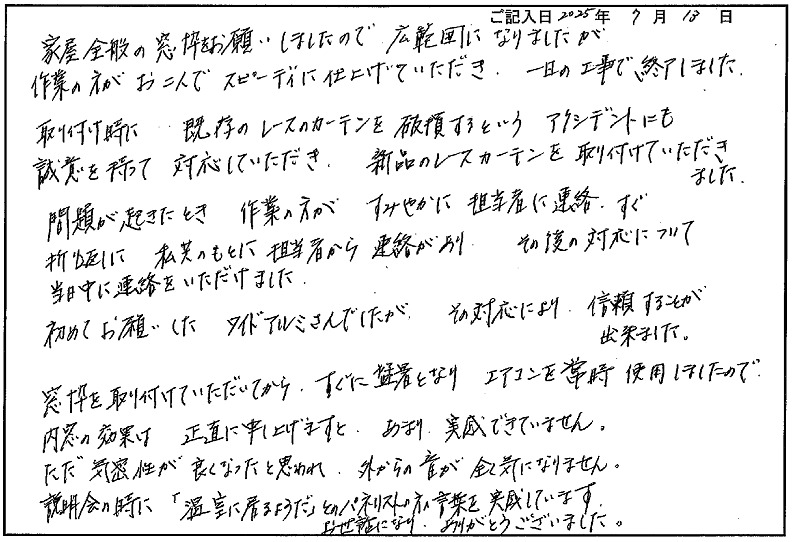 ご記入日 2025年 7月 13日
家屋全般の窓枠をお願いしましたので 広範囲に なりましたが
作業の方が お二人で スピーディに仕上げていただき、一日の工事で、終了しました。
取り付け時に 既存のレースのカーテンを 破損するという アクシデントにも
誠意を持って 対応していただき、 新品のレースカーテンを 取り付けていただき
ました。
問題が起きたとき 作業の方が すみやかに 担当者に連絡、すぐ
折り返しに 私共のもとに担当者から 連絡があり、 その後の対応について
当日中に連絡をいただけました。
初めてお願いした ワイドアルミさんでしたが、 その対応により、信頼することが
出来ました。
窓枠を取り付けていただいてから、すぐに猛暑となり エアコンを常時 使用しましたので
内窓の効果は 正直に申し上げますと、あまり、実感できていません。
ただ 気密性が 良くなったと思われ、外からの音が 全く気になりません。
説明会の時に「温室に居るようだ」とのパネリストの方の言葉を 実感しています。
お世話になり、ありがとうございました。